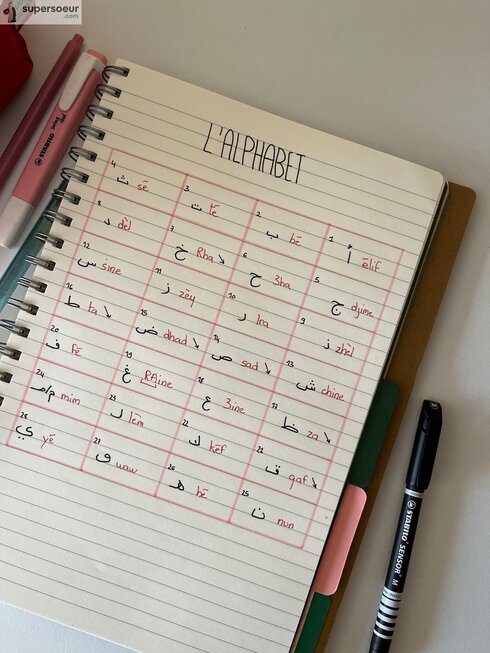 supersoeur
.com
L'ALPHABET
1 أ ēlif 2 ب bē 3 ت tē 4 ث sē
5 ج djime 6 ح 3ha 7 خ Rha ↘ 8 د dèl
9 ذ zhèl 10 ر Ira 11 ز zēy 12 س sine
13 ش chine 14 ص sad ↘ 15 ض dhad ↘ 16 ط ta ↘
17 ظ za ↘ 18 ع 3ine 19 غ RAine 20 ف fē
21 ق qaf ↘ 22 ك kēf 23 ل lēm 24 م mim
25 ن nun 26 ه hē 27 و waw 28 ي yē
STABILO
STABILO SENSOR M